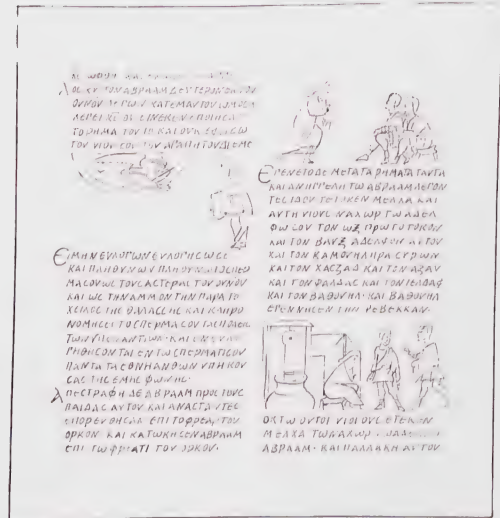 ΤΟΝ ΑΒΡΑΑΜ ΔΕΥΤΕΡΟΝ
ΟΥΝΟΥ ΛΕΓΩΝ ΚΑΤΕΜΑΥΤΟΥ ΩΜΟϹΑ
ΛΕΓΕΙ ΚϹ ΟΥ ΕΙΝΕΚΕΝ ΕΠΟΙΗϹΑ
ΤΟ ΡΗΜΑ ΤΟΥΤΟ ΚΑΙ ΟΥΚ
ΤΟΥ ΥΙΟΥ ϹΟΥ ΤΟΥ ΑΓΑΠΗΤΟΥ ΔΙ ΕΜΕ
ΕΙ ΜΗΝ ΕΥΛΟΓΩΝ ΕΥΛΟΓΗϹΩ ϹΕ
ΚΑΙ ΠΛΗΘΥΝΩΝ ΠΛΗΘΥΝΩ ΤΟ ϹΠΕΡ
ΜΑ ϹΟΥ ΩϹ ΤΟΥϹ ΑϹΤΕΡΑϹ ΤΟΥ ΟΥΝΟΥ
ΚΑΙ ΩϹ ΤΗΝ ΑΜΜΟΝ ΤΗΝ ΠΑΡΑ ΤΟ
ΧΕΙΛΟϹ ΤΗϹ ΘΑΛΑϹϹΗϹ ΚΑΙ ΚΛΗΡΟ
ΝΟΜΗϹΕΙ ΤΟ ϹΠΕΡΜΑ ϹΟΥ ΤΑϹ ΠΟΛΕΙϹ
ΤΩΝ ΥΠΕΝΑΝΤΙΩΝ· ΚΑΙ ΕΝΕΥΛΟ
ΓΗΘΗϹΟΝΤΑΙ ΕΝ ΤΩ ϹΠΕΡΜΑΤΙ ϹΟΥ
ΠΑΝΤΑ ΤΑ ΕΘΝΗ ΑΝΘ ΩΝ ΥΠΗΚΟΥ
ϹΑϹ ΤΗϹ ΕΜΗϹ ΦΩΝΗϹ·
ΑΠΕϹΤΡΑΦΗ ΔΕ ΑΒΡΑΑΜ ΠΡΟϹ ΤΟΥϹ
ΠΑΙΔΑϹ ΑΥΤΟΥ ΚΑΙ ΑΝΑϹΤΑΝΤΕϹ
ΕΠΟΡΕΥΘΗϹΑΝ ΕΠΙ ΤΟ ΦΡΕΑΡ ΤΟΥ
ΟΡΚΟΥ· ΚΑΙ ΚΑΤΩΚΗϹΕΝ ΑΒΡΑΑΜ
ΕΠΙ ΤΩ ΦΡΕΑΤΙ ΤΟΥ ΟΡΚΟΥ·
ΕΓΕΝΕΤΟ ΔΕ ΜΕΤΑ ΤΑ ΡΗΜΑΤΑ ΤΑΥΤΑ
ΚΑΙ ΑΝΗΓΓΕΛΗ ΤΩ ΑΒΡΑΑΜ ΛΕΓΟΝ
ΤΕϹ ΙΔΟΥ ΤΕΤΟΚΕΝ ΜΕΛΧΑ ΚΑΙ
ΑΥΤΗ ΥΙΟΥϹ ΝΑΧΩΡ ΤΩ ΑΔΕΛ
ΦΩ ϹΟΥ ΤΟΝ ΩΞ ΠΡΩΤΟΤΟΚΟΝ
ΚΑΙ ΤΟΝ ΒΑΥΞ ΑΔΕΛΦΟΝ ΑΥΤΟΥ
ΚΑΙ ΤΟΝ ΚΑΜΟΥΗΛ ΠΡΑ ϹΥΡΩΝ
ΚΑΙ ΤΟΝ ΧΑϹΖΑΔ ΚΑΙ ΤΟΝ ΑΖΑΥ
ΚΑΙ ΤΟΝ ΦΑΛΔΑϹ ΚΑΙ ΤΟΝ ΙΕΛΔΑΦ
ΚΑΙ ΤΟΝ ΒΑΘΟΥΗΛ· ΚΑΙ ΒΑΘΟΥΗΛ
ΕΓΕΝΝΗϹΕΝ ΤΗΝ ΡΕΒΕΚΚΑΝ·
ΟΚΤΩ ΟΥΤΟΙ ΥΙΟΙ ΟΥϹ ΕΤΕΚΕΝ
ΜΕΛΧΑ ΤΩ ΝΑΧΩΡ
ΑΒΡΑΑΜ· ΚΑΙ ΠΑΛΛΑΚΗ ΑΥΤΟΥ